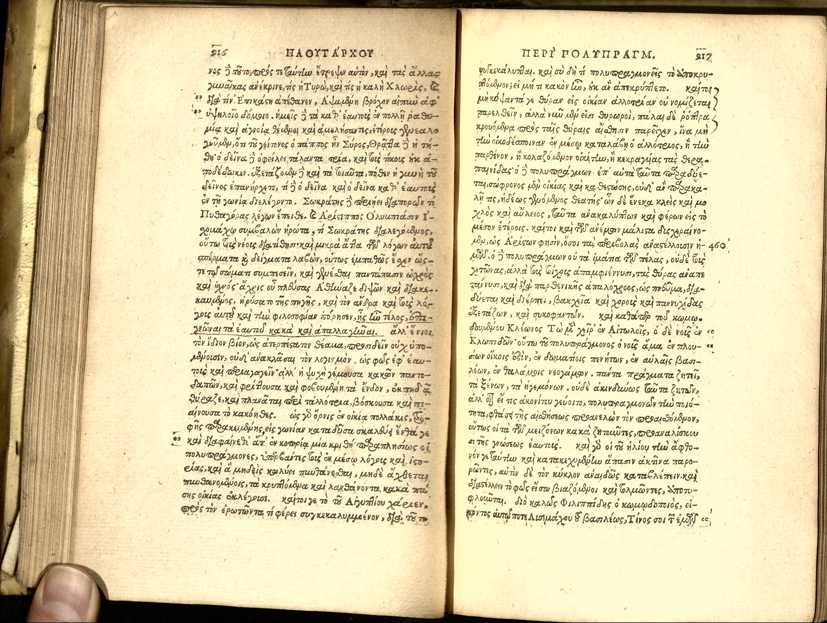 216 ΠΛΟΥΤΑΡΧΟΥ
νος ἢ τοῦτο, πρὸς τε ταύτην ἔτρεψεν αὑτὸν, καὶ τὰς ἄλλας
γυναῖκας ἀνέκρινε, τίς ἡ Τυρὼ, καὶ τίς ἡ καλὴ Χλωρὶς, καὶ
διὰ τίν' Ἐπικάστη ἀπέθανεν, Ἁψαμένη βρόχον αἰπὺν ἀφ'
ὑψηλοῖο μελάθρου. ἡμεῖς δὲ τὰ καθ' ἑαυτοὺς ἐν πολλῇ ῥᾳθυ-
μίᾳ καὶ ἀγνοίᾳ θέμενοι καὶ ἀμελήσαντες, ἑτέρους γενεαλο-
γοῦμεν, ὅτι τοῦ γείτονος ὁ πάππος ἦν Σύρος, Θρᾷττα δὲ ἡ τή-
θη· ὁ δεῖνα δὲ ὀφείλει τάλαντα τρία, καὶ τοὺς τόκους οὐκ ἀ-
ποδέδωκεν. ἐξετάζομεν δὲ καὶ τὰ τοιαῦτα, πόθεν ἡ γυνὴ τοῦ
δεῖνος ἐπανήρχετο, τί δὲ ὁ δεῖνα καὶ ὁ δεῖνα καθ' ἑαυτοὺς
ἐν τῇ γωνίᾳ διελέγοντο. Σωκράτης δὲ περιῄει διαπορῶν τί
Πυθαγόρας λέγων ἔπειθε. καὶ Ἀρίστιππος Ὀλυμπίασιν Ἰ-
σχομάχῳ συμβαλὼν ἠρώτα, τί Σωκράτης διαλεγόμενος,
οὕτω τοὺς νέους διατίθησι· καὶ μικρὰ ἄττα τῶν λόγων αὐτοῦ
σπέρματα καὶ δείγματα λαβὼν, οὕτως ἐμπαθῶς ἔσχεν ὥσ-
τε τῷ σώματι συμπεσεῖν, καὶ γενέσθαι παντάπασιν ὠχρὸς
καὶ ἰσχνός· ἄχρις οὗ πλεύσας Ἀθήναζε διψῶν καὶ διακε-
καυμένος, ἠρύσατο τῆς πηγῆς, καὶ τὸν ἄνδρα καὶ τοὺς λό-
γους αὐτοῦ καὶ τὴν φιλοσοφίαν ἱστόρησεν, ἧς ἦν τέλος, ἐπι-
γνῶναι τὰ ἑαυτοῦ κακὰ καὶ ἀπαλλαγῆναι. ἀλλ' ἔνιοι
τὸν ἴδιον βίον, ὡς ἀτερπέστατον θέαμα, προσιδεῖν οὐχ ὑπο-
μένουσιν, οὐδ' ἀνακλάσαι τὸν λογισμὸν, ὡς φῶς ἐφ' ἑαυ-
τοὺς καὶ περιαγαγεῖν· ἀλλ' ἡ ψυχὴ γέμουσα κακῶν παντο-
δαπῶν, καὶ φρίττουσα καὶ φοβουμένη τὰ ἔνδον, ἐκπηδᾷ
θύραζε, καὶ πλανᾶται περὶ τἀλλότρια, βόσκουσα καὶ πι-
αίνουσα τὸ κακόηθες. ὡς γὰρ ὄρνις ἐν οἰκίᾳ πολλάκις, τρο-
φῆς παρακειμένης, εἰς γωνίαν καταδῦσα σκαλεύει ἔνθα γε
καὶ διαφαίνεθ' ἅτ' ἐν κοπρίῃ μία κριθή· παραπλησίως οἱ
πολυπράγμονες, ὑπερβάντες τοὺς ἐν μέσῳ λόγους καὶ ἱστο-
ρίας, καὶ ἃ μηδεὶς κωλύει πυνθάνεσθαι, μηδὲ ἄχθεται
πυνθανομένοις, τὰ κρυπτόμενα καὶ λανθάνοντα, κακὰ πά-
σης οἰκίας ἐκλέγουσι. καίτοι γε τὸ τοῦ Αἰγυπτίου χάριεν,
πρὸς τὸν ἐρωτῶντα, τί φέρει συγκεκαλυμμένον, διὰ τοῦτο
ΠΕΡΙ ΠΟΛΥΠΡΑΓΜ. 217
συγκεκάλυπται. καὶ σὺ δὴ τί πολυπραγμονεῖς τὸ ἀποκρυ-
πτόμενον; εἰ μή τι κακὸν ἦν, οὐκ ἂν ἀπεκρύπτετο. καίτοι
μὴ κόψαντά γε θύραν εἰς οἰκίαν ἀλλοτρίαν οὐ νομίζεται
παρελθεῖν, ἀλλὰ νῦν μέν εἰσι θυρωροὶ, πάλαι δὲ ῥόπτρα
κρουόμενα πρὸς ταῖς θύραις αἴσθησιν παρεῖχεν, ἵνα μὴ
τὴν οἰκοδέσποιναν ἐν μέσῳ καταλάβῃ ὁ ἀλλότριος, ἢ τὴν
παρθένον, ἢ κολαζόμενον οἰκέτην, ἢ κεκραγυίας τὰς θερα-
παινίδας· ὁ δὲ πολυπράγμων ἐπ' αὐτὰ ταῦτα παραδύε-
ται, σώφρονος μὲν οἰκίας καὶ καθεστώσης, οὐδ' ἂν παρακα-
λῇ τις, ἡδέως γενόμενος θεατής· ὧν δὲ ἕνεκα κλεὶς καὶ μο-
χλὸς καὶ αὔλειος, ταῦτα ἀνακαλύπτων καὶ φέρων εἰς τὸ
μέσον ἑτέροις. καίτοι καὶ τῶν ἀνέμων μάλιστα δυσχεραίνο-
μεν, ὡς Ἀρίστων φησὶν, ὅσοι τὰς περιβολὰς ἀναστέλλουσιν ἡ- 460
μῶν, ὁ δὲ πολυπράγμων οὐ τὰ ἱμάτια τῶν πέλας, οὐδὲ τοὺς
χιτῶνας, ἀλλὰ τοὺς τοίχους ἀπαμφιέννυσι, τὰς θύρας ἀναπε-
τάννυσι, καὶ διὰ παρθενικῆς ἁπαλόχροος, ὡς πνεῦμα, δια-
δύεται καὶ διέρπει, βακχεῖα καὶ χοροὺς καὶ παννυχίδας
ἐξετάζων, καὶ συκοφαντῶν. καὶ καθάπερ τοῦ κωμῳ-
δουμένου Κλέωνος Τὼ μὲν χεῖρ' ἐν Αἰτωλοῖς, ὁ δὲ νοῦς ἐν
Κλωπιδῶν· οὕτω τοῦ πολυπράγμονος ὁ νοῦς ἅμα ἐν πλου-
σίων οἴκοις ἐστὶν, ἐν δωματίοις πενήτων, ἐν αὐλαῖς βασι-
λέων, ἐν θαλάμοις νεογάμων. πάντα πράγματα ζητεῖ,
τὰ ξένων, τὰ ἡγεμόνων. οὐδὲ ἀκινδύνως ταῦτα ζητῶν,
ἀλλ' οἷον εἴ τις ἀκονίτου γεύοιτο, πολυπραγμονῶν τὴν ποιό-
τητα, φθάσει τῆς αἰσθήσεως προανελὼν τὸν αἰσθανόμενον,
οὕτως οἱ τὰ τῶν μειζόνων κακὰ ζητοῦντες, προαναλίσκου-
σι τῆς γνώσεως ἑαυτούς. καὶ γὰρ οἱ τοῦ ἡλίου τὴν ἄφθο-
νόν γε ταύτην καὶ κατακεχυμένην ἅπασιν ἀκτῖνα παρο-
ρῶντες, αὐτὸν δὲ τὸν κύκλον ἀναιδῶς καταβλέπειν καὶ
διαστέλλειν τὸ φῶς εἴσω βιαζόμενοι καὶ τολμῶντες, ἀποτυ-
φλοῦνται. διὸ καλῶς Φιλιππίδης ὁ κωμῳδοποιὸς, εἰ-
πόντος αὐτῷ ποτε Λυσιμάχου τοῦ βασιλέως, Τίνος σοι τῶν ἐμῶν